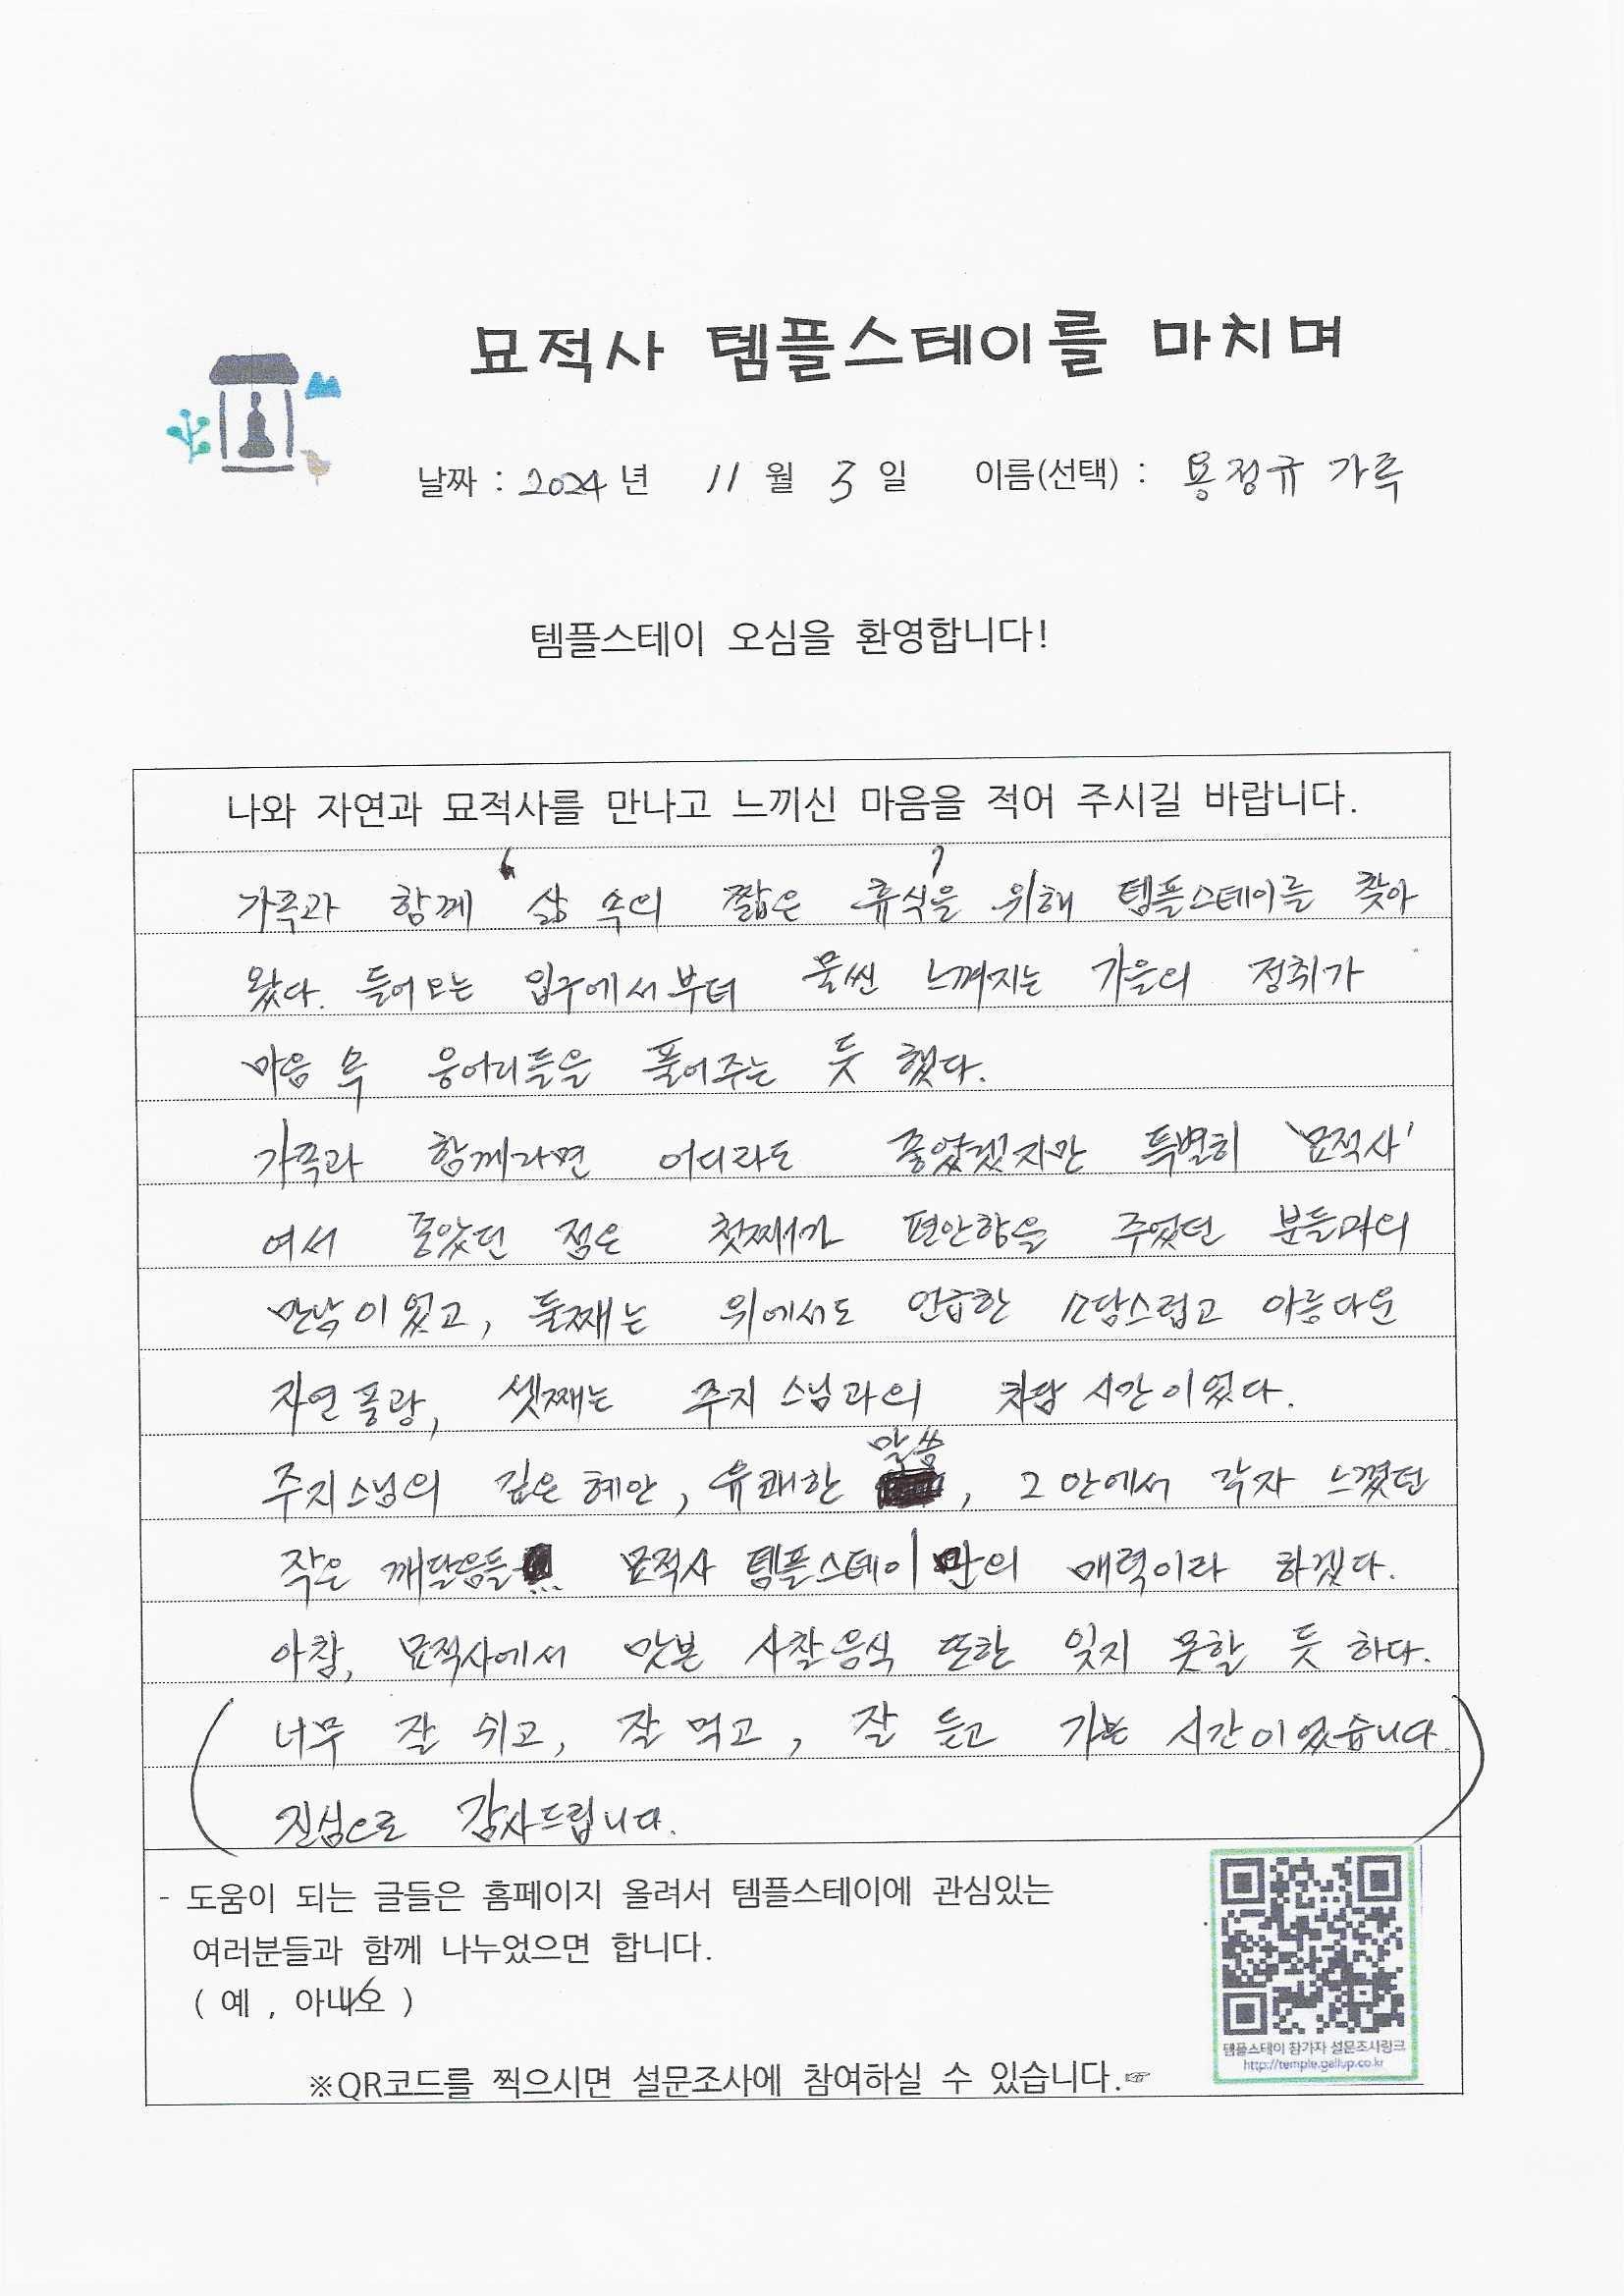 묘적사 템플스테이를 마치며
날짜 : 2024 년 11 월 3 일 이름(선택) : 용정규 가족
템플스테이 오심을 환영합니다!
나와 자연과 묘적사를 만나고 느끼신 마음을 적어 주시길 바랍니다.
가족과 함께 '삶 속의 짧은 휴식'을 위해 템플스테이를 찾아
왔다. 들어오는 입구에서부터 물씬 느껴지는 가을의 정취가
마음 속 응어리들을 풀어주는 듯 했다.
가족과 함께라면 어디라도 좋았겠지만 특별히 '묘적사'
여서 좋았던 점은 첫째가 편안함을 주었던 분들과의
만남이었고, 둘째는 위에서도 언급한 소담스럽고 아름다운
자연풍광, 셋째는 주지 스님과의 차담 시간이었다.
주지스님의 깊은 혜안, 유쾌한 말씀, 그 안에서 각자 느꼈던
작은 깨달음들 묘적사 템플스테이만의 매력이라 하겠다.
아참, 묘적사에서 맛본 사찰음식 또한 잊지 못할 듯 하다.
(너무 잘 쉬고, 잘 먹고, 잘 듣고 가는 시간이었습니다.
진심으로 감사드립니다.)
- 도움이 되는 글들은 홈페이지 올려서 템플스테이에 관심있는
여러분들과 함께 나누었으면 합니다.
( 예 , 아니오 )
템플스테이 참가자 설문조사링크
http://temple.gallup.co.kr
※QR코드를 찍으시면 설문조사에 참여하실 수 있습니다.☞